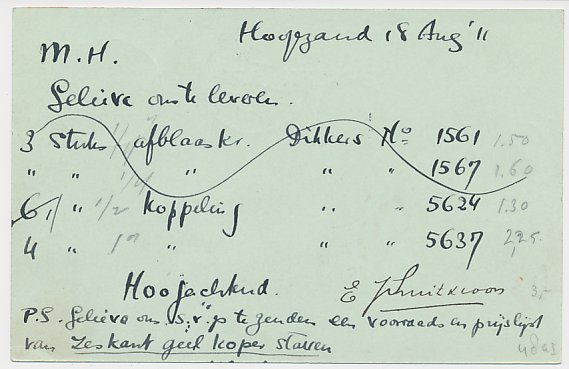 Hoogezand 18 Aug '11
M.H.
Gelieve ons te leveren.
3 Stuks afblaaskr. Dikkers No 1561 1.50
" " 1/4 " " " 1567 1.60
6 " 1/2 koppeling " " 5624 1.30
4 " 1" " " " 5637 2,25
Hoogachtend. E 3,-
P.S. Gelieve ons s.v.p te zenden een voorraad en prijslijst
van zeskant geel koper staven